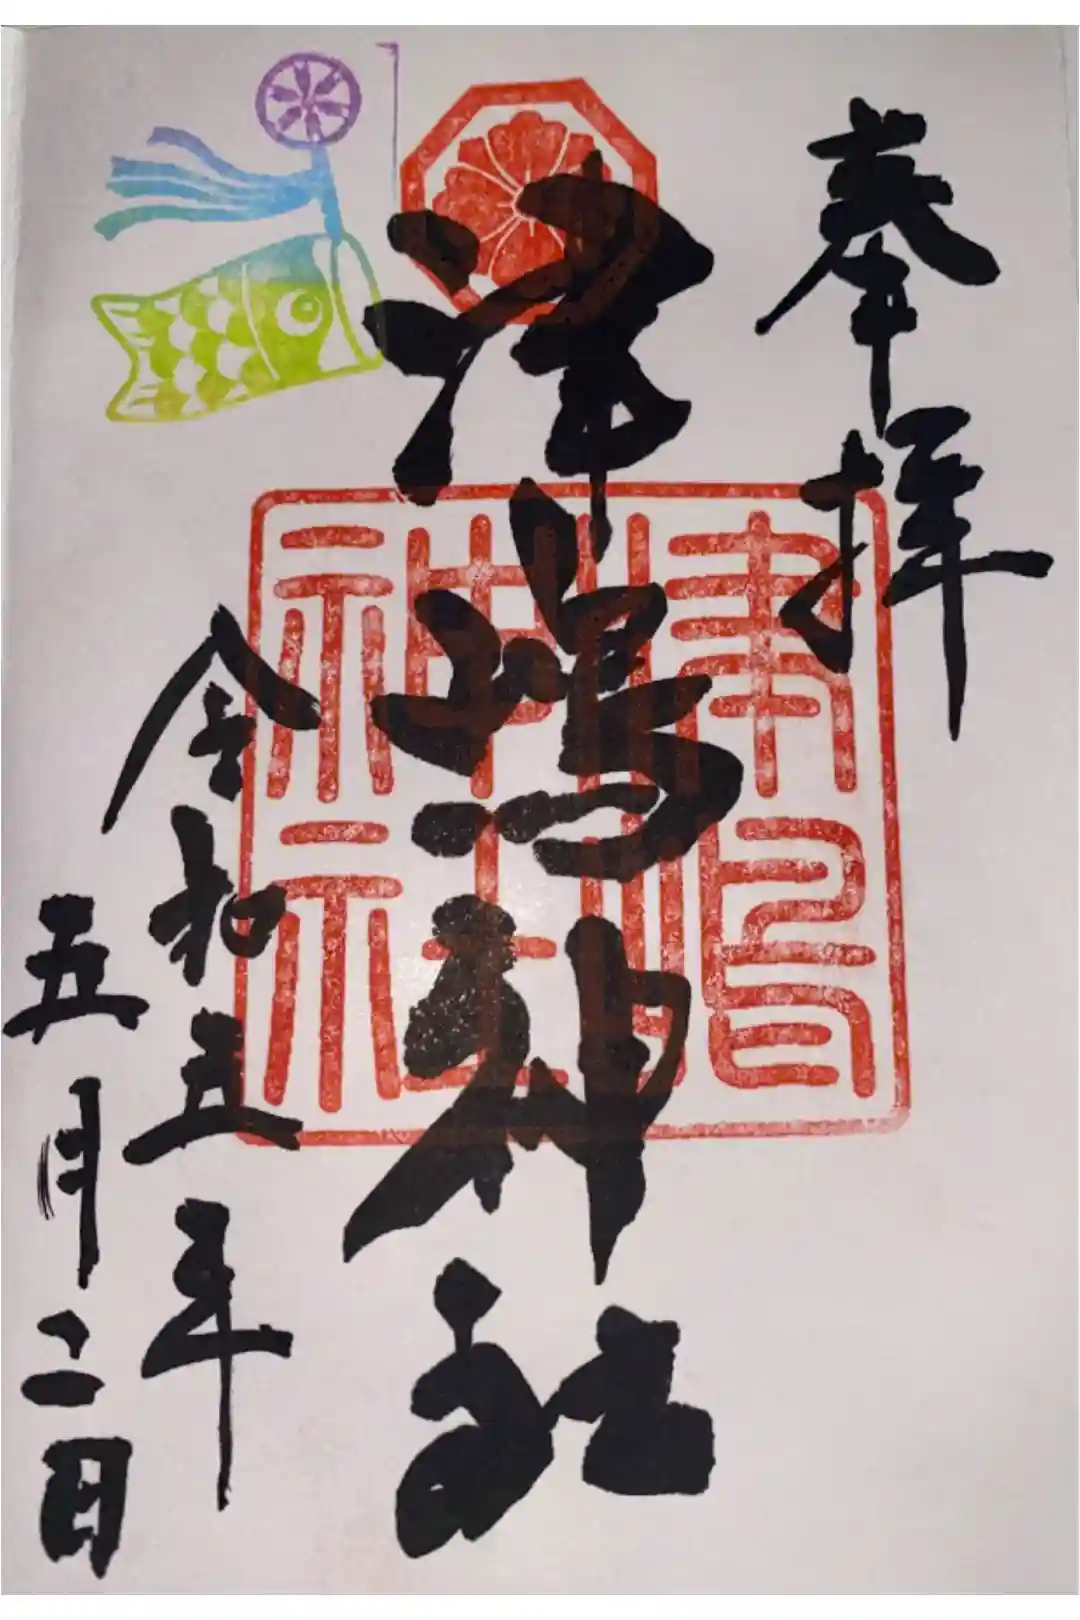 奉拝
津嶋神社
令和五年
五月二日
津嶋
神社